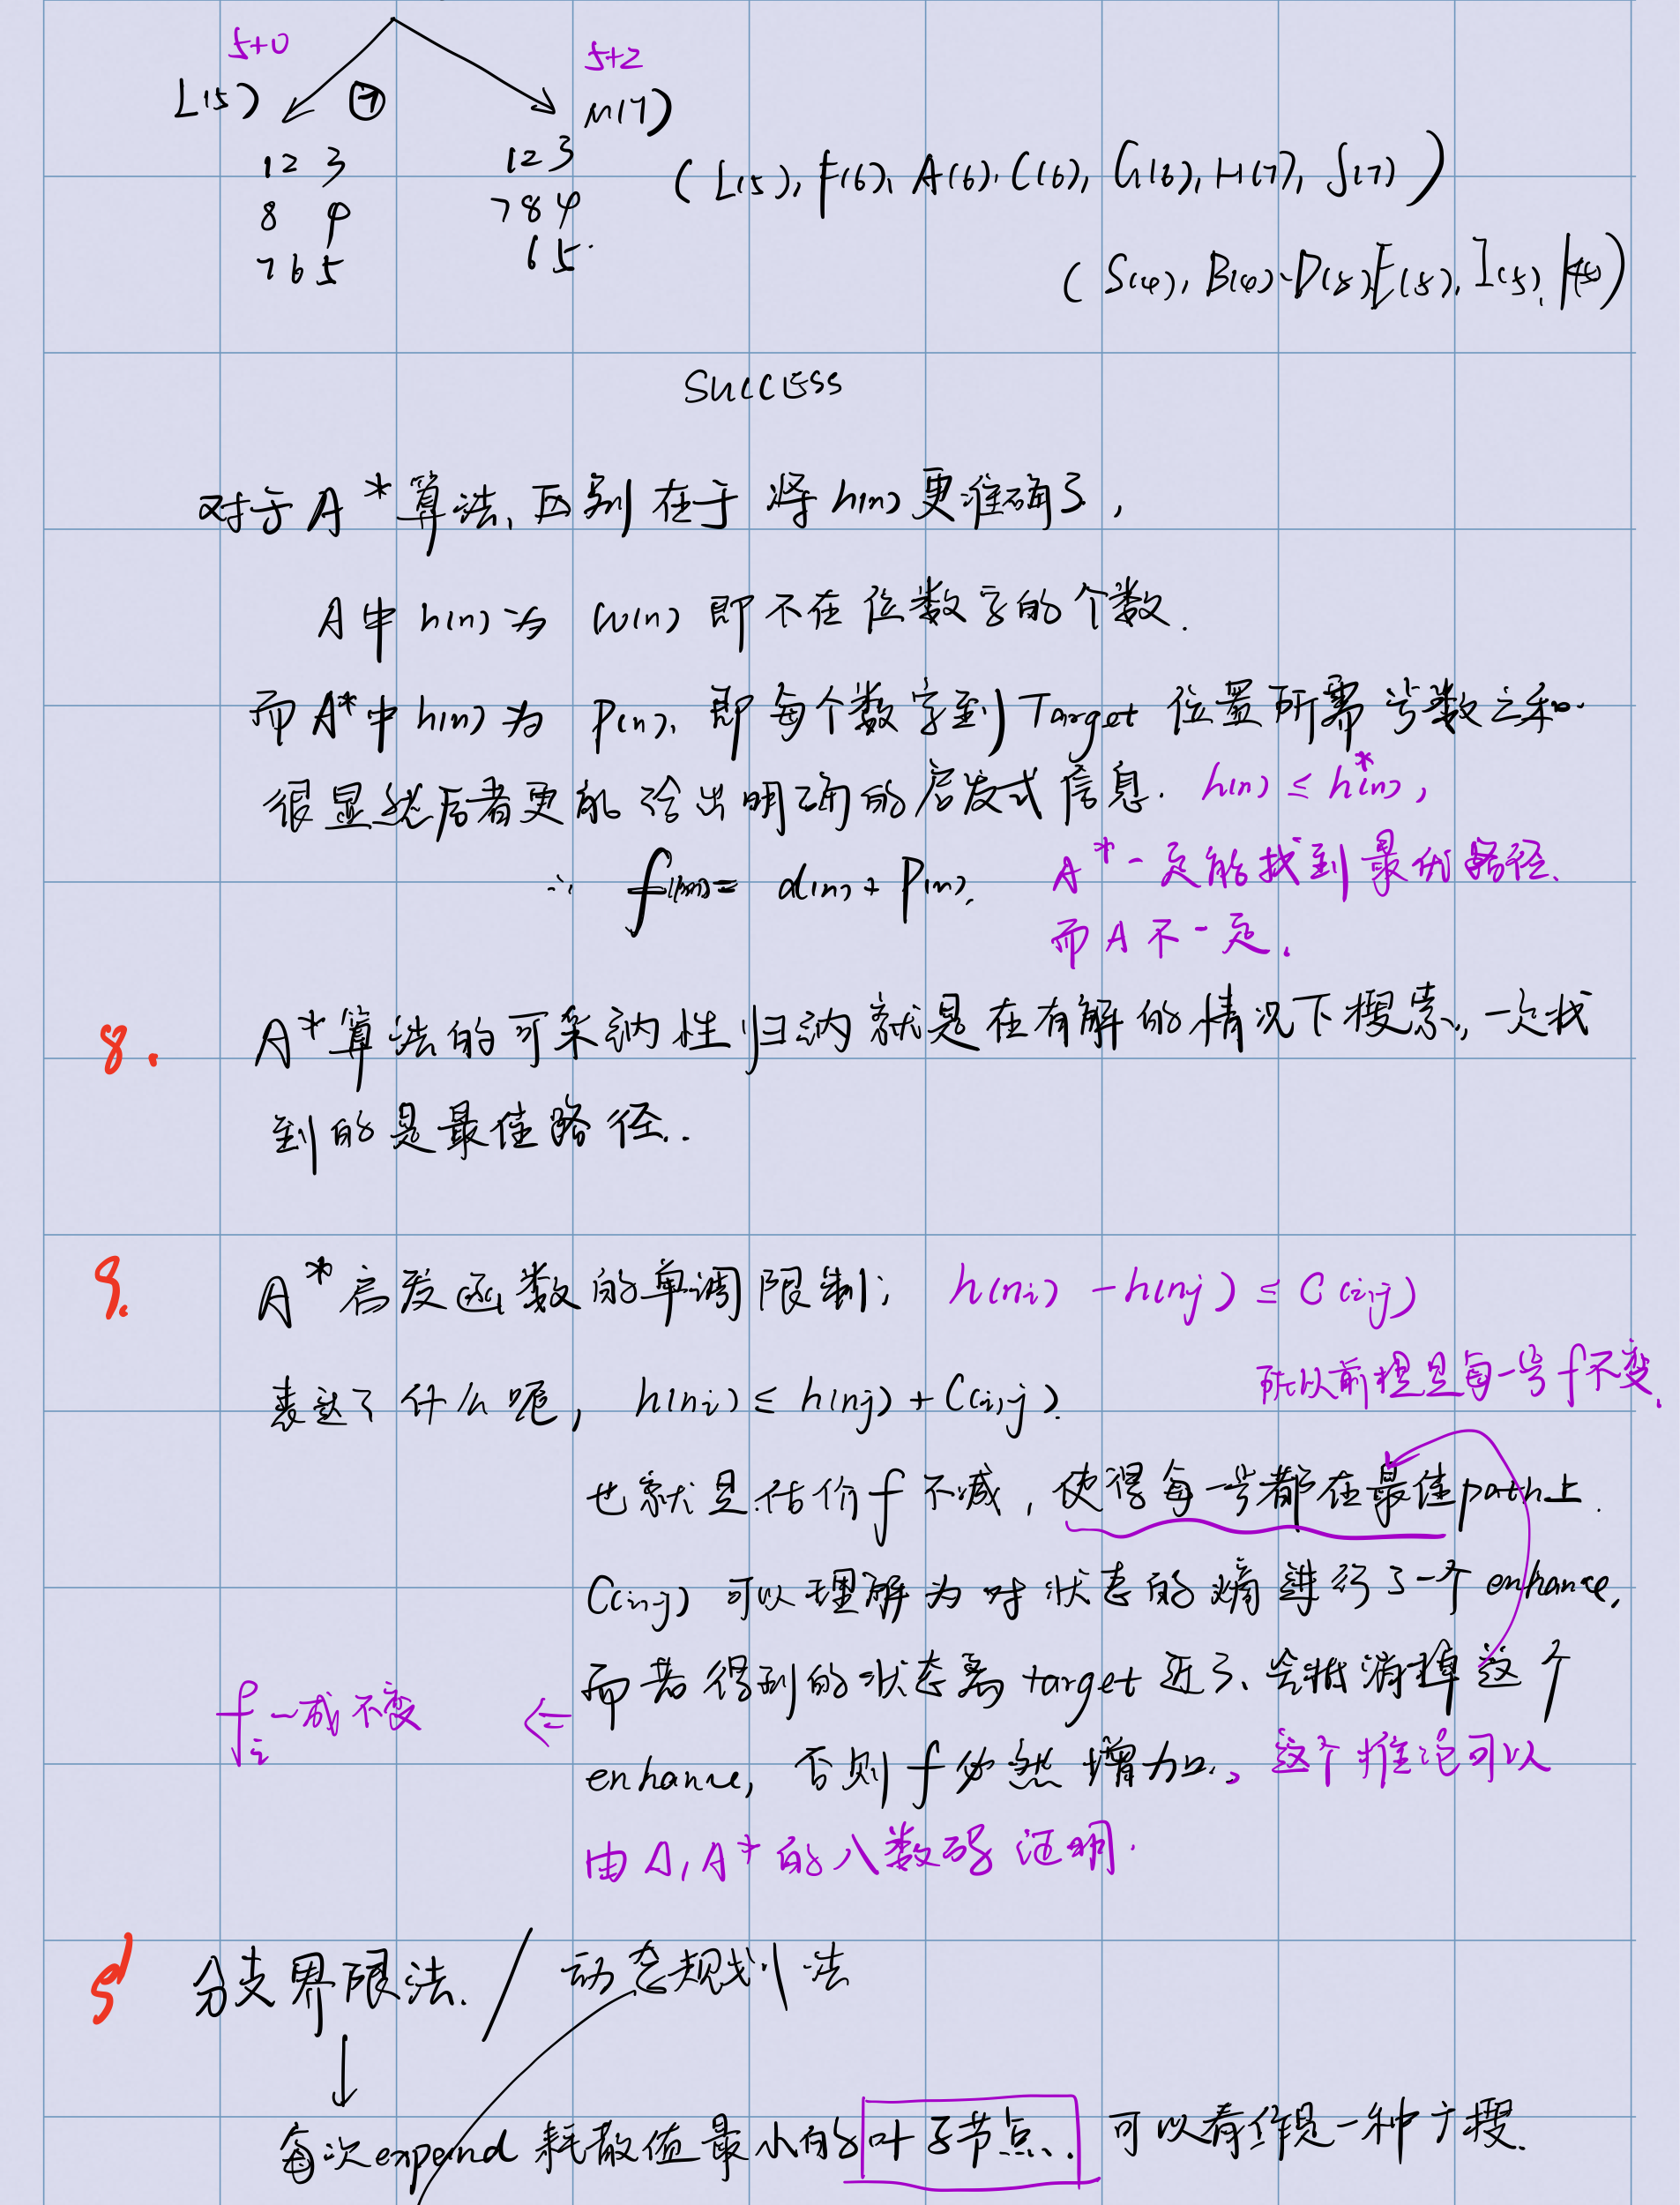 5+0 5+2
L(5) ⑦ M(7)
1 2 3 1 2 3
8 4 7 8 4
7 6 5 6 5
( L(5), F(6), A(6), C(6), G(6), H(7), J(7) )
( S(4), B(4), D(5) E(5), I(5), K(5) )
SUCCESS
对于A*算法、区别在于将h(n)更准确了,
A中h(n)为 W(n) 即不在位数字的个数.
而A*中h(n)为 P(n), 即每个数字到Target位置所需步数之和.
很显然后者更能给出明确的启发式信息. h(n) ≤ h*(n),
∴ f(n) = d(n) + P(n). A*一定能找到最优路径.
而A不一定.
8. A*算法的可采纳性归纳就是在有解的情况下搜索,一定找
到的是最佳路径..
9. A*启发函数的单调限制; h(ni) - h(nj) ≤ C(i,j)
表达了什么呢, h(ni) ≤ h(nj) + C(i,j). 所以前提是每一步f不变.
也就是估价f不减, 使得每一步都在最佳path上.
C(i,j) 可以理解为对状态的熵进行了一个enhance,
而若得到的状态离target近了、会抵消掉这个
fi一成不变 ⇐
enhance, 否则f必然增加.。这个推论可以
由A, A*的八数码证明.
5' 分支界限法. / 动态规划法
↓
每次expend耗散值最小的叶子节点. 可以看作是一种广搜.